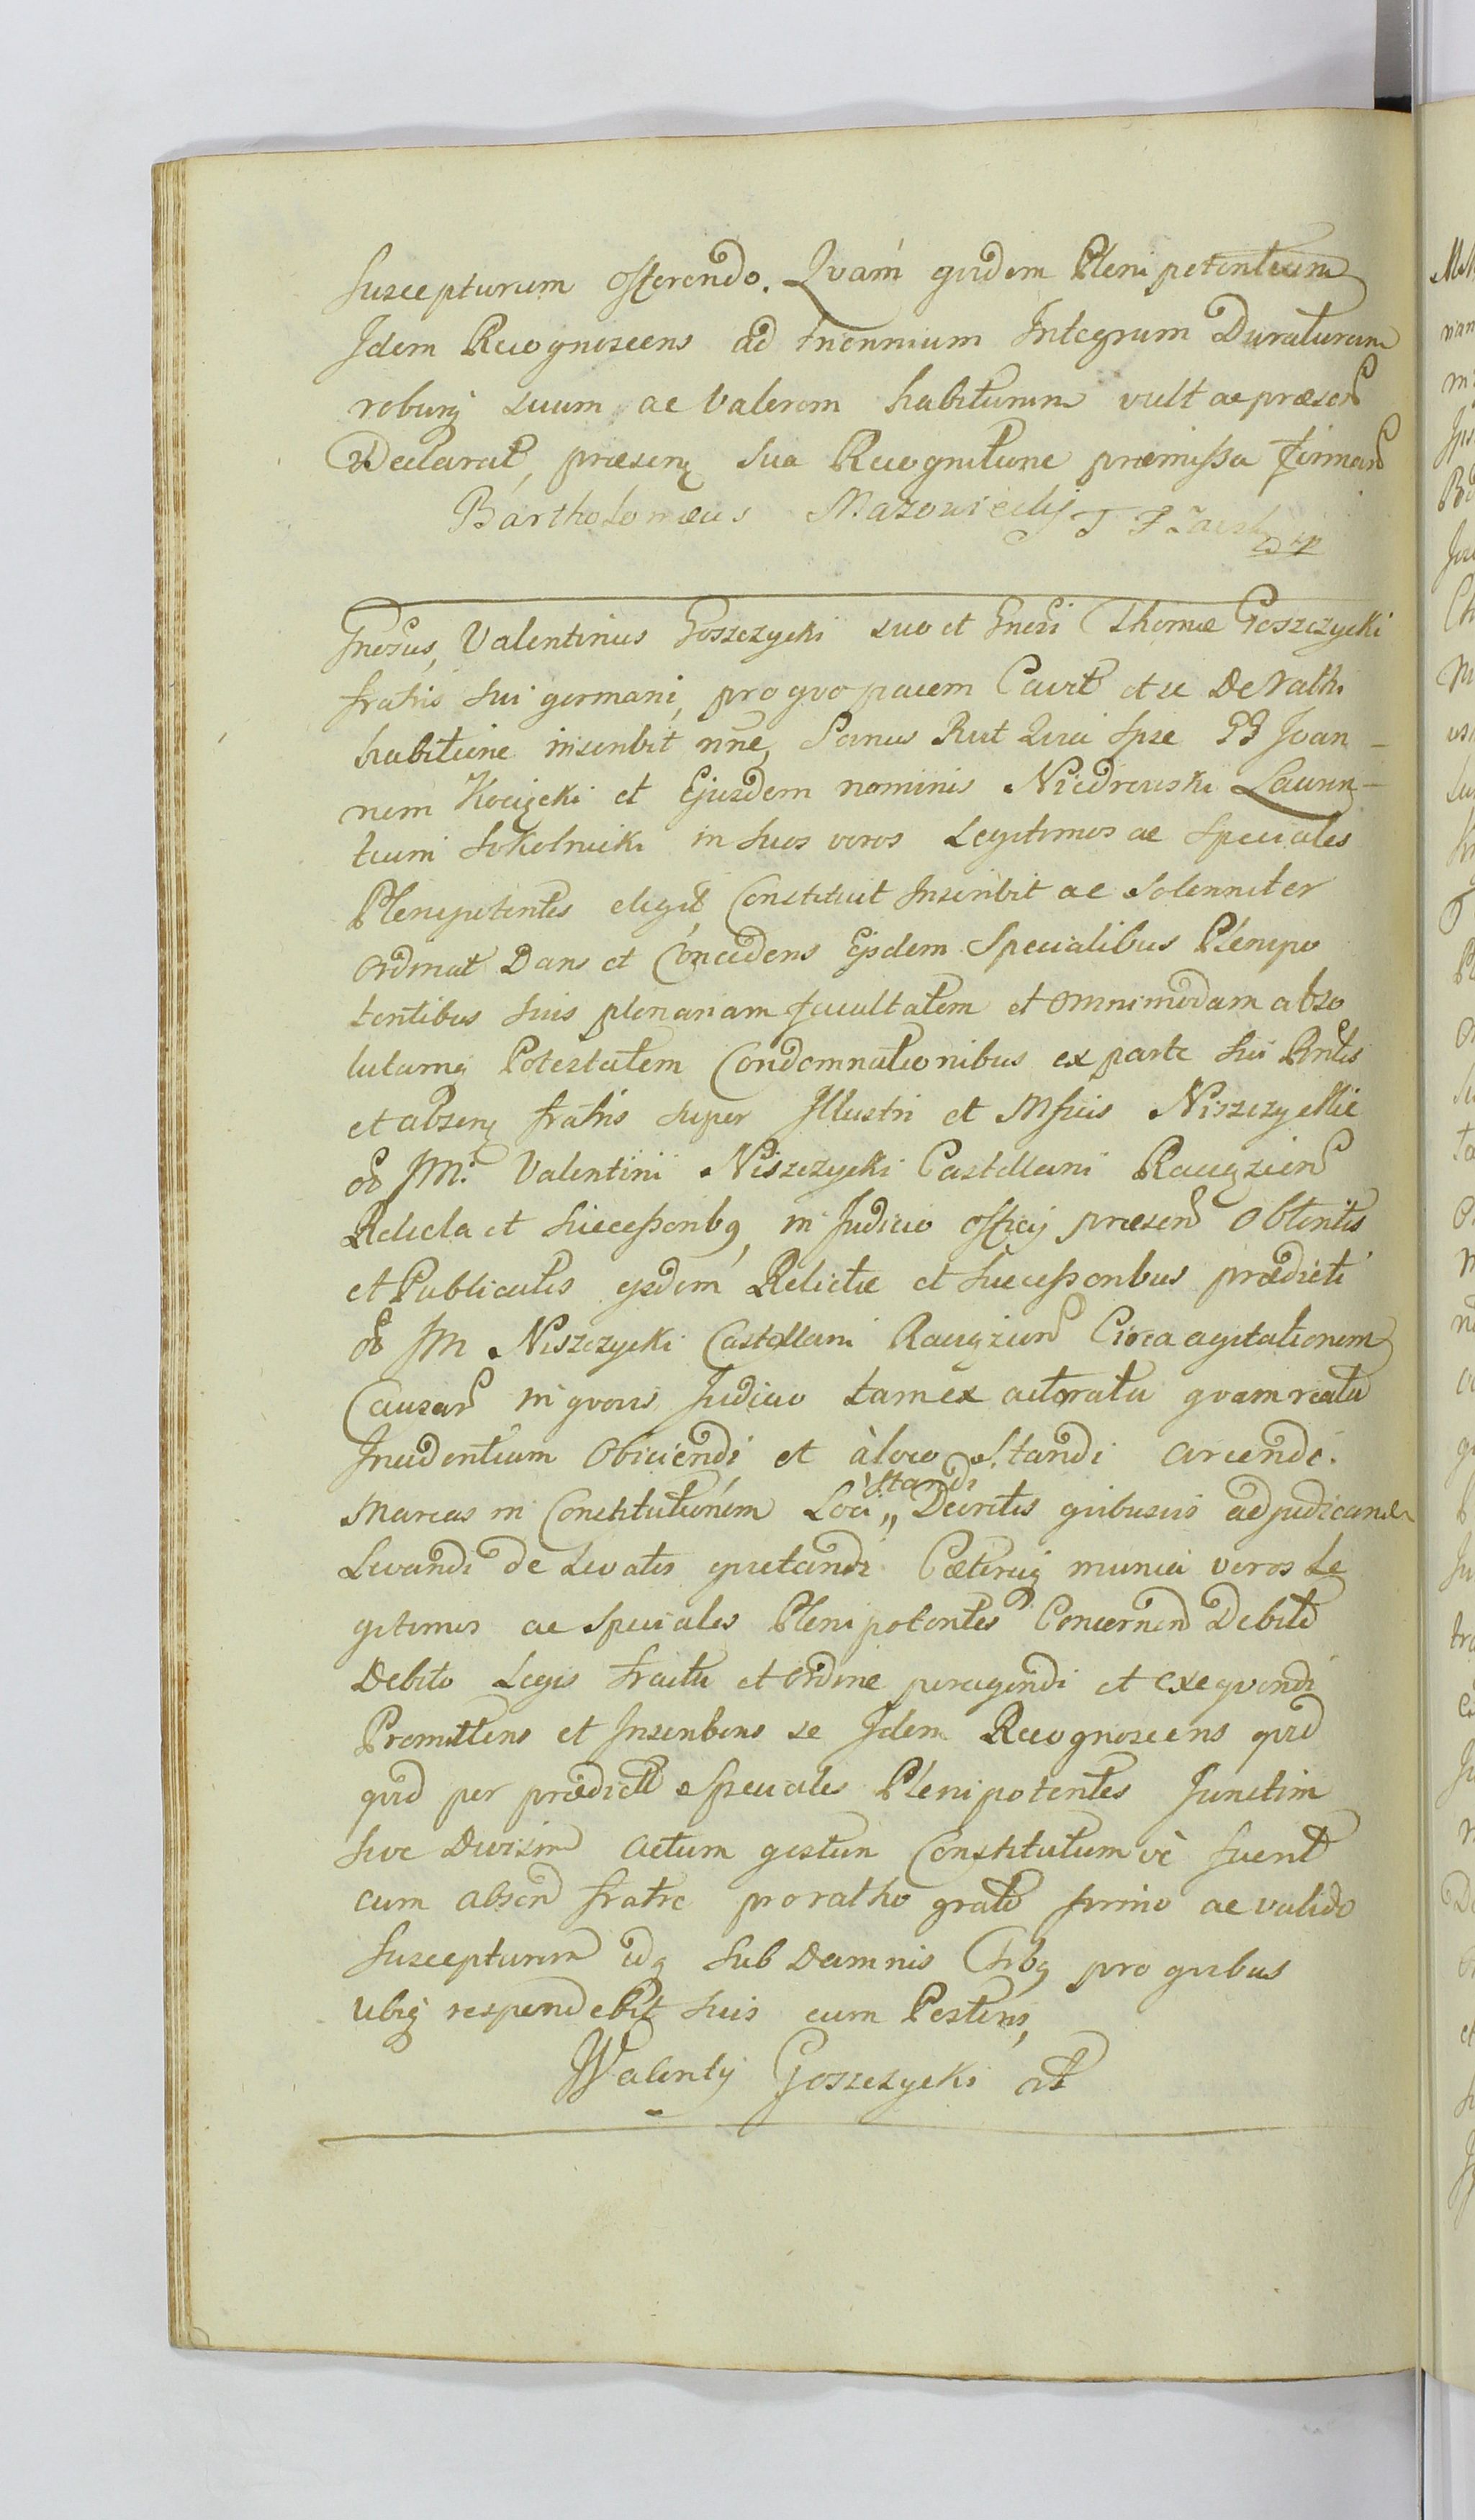 Suscepturum offerendo. Qvam qvidem Plenipotentiam
Idem Recognoscens ad triennium Integrum Duraturam
roburq suum ac Valorem habituram vult ac præsen
Declarat, præsenq sua Recognitione præmissa firman
Bartholomæus Mazowiecki
Gnosus, Valentinus Goszczycki suo et Gnosi Thomæ Goszczycki
fratris sui germani, pro qvo pacem Cavit et se De rathi
habitione inscribit nne, Sanus Rect Qvia Ipse GG Joan-
nem Kocięcki et Ejusdem nominis Niedrowski Lauren-
tium Sokolnicki in suos veros Legitimos ac Speciales
Plenipotentes elegit, Constituit Inscribit ac Solenniter
Ordinat Dans et Concedens Ejsdem Specialibus Plenipo
tentibus suis plenariam facultatem et omnimodam abso
lutamq Potestatem Condemnationibus ex parte sui Pntis
et absenq fratris super Illustri et Mfcis Niszczyckie
Valentini Niszczycki Castellani Raciązien
Relicta et Successoribq, in Judicio Officij præsen Obtentis
et Publicatis ejsdem Relictæ et Successoribus prædicti
Niszczycki Castellani Raciązien Circa agitationem
Causar in qvovis Judicio tam ex actoratu qvam reatu
Incidentium Obiiciendi et à loco Standi arcendi.
Marcas in Constitutionem Loci „ standi Decretis qvibusvis adjudicandas
Levandi de Levatis qvietandi Cæteraq munia veros Le
gitimos ac Speciales Plenipotentes Concernen Debite
Debito Legis tractu et ordine peragendi et exeqvendi
Promittens et Inscribens se Idem Recognoscens qvid
qvid per prædict Speciales Plenipotentes Junctim
sive Divisim actum gestum Constitutumve fuerit
cum absen fratre pro ratho grato firmo ac valido
Suscepturum idq sub Damnis pro qvibus
Ubiq respondebit suis cum Posteris,
Walenty Goszczycki